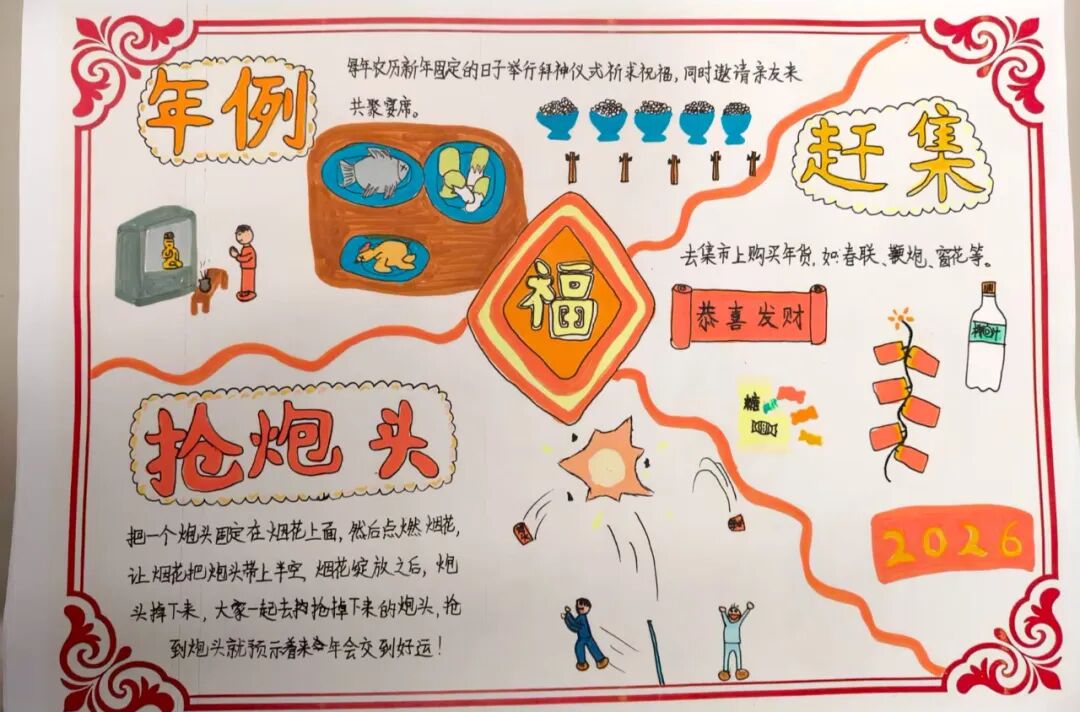 年例
每年农历新年固定的日子举行拜神仪式祈求祝福，同时邀请亲友来
共聚宴席。
赶集
去集市上购买年货，如春联、鞭炮、窗花等。
福
恭喜发财
椰汁
糖
2026
抢炮头
把一个炮头固定在烟花上面，然后点燃烟花，
让烟花把炮头带上半空，烟花绽放之后，炮
头掉下来，大家一起去抢掉下来的炮头，抢
到炮头就预示着来年会交到好运！